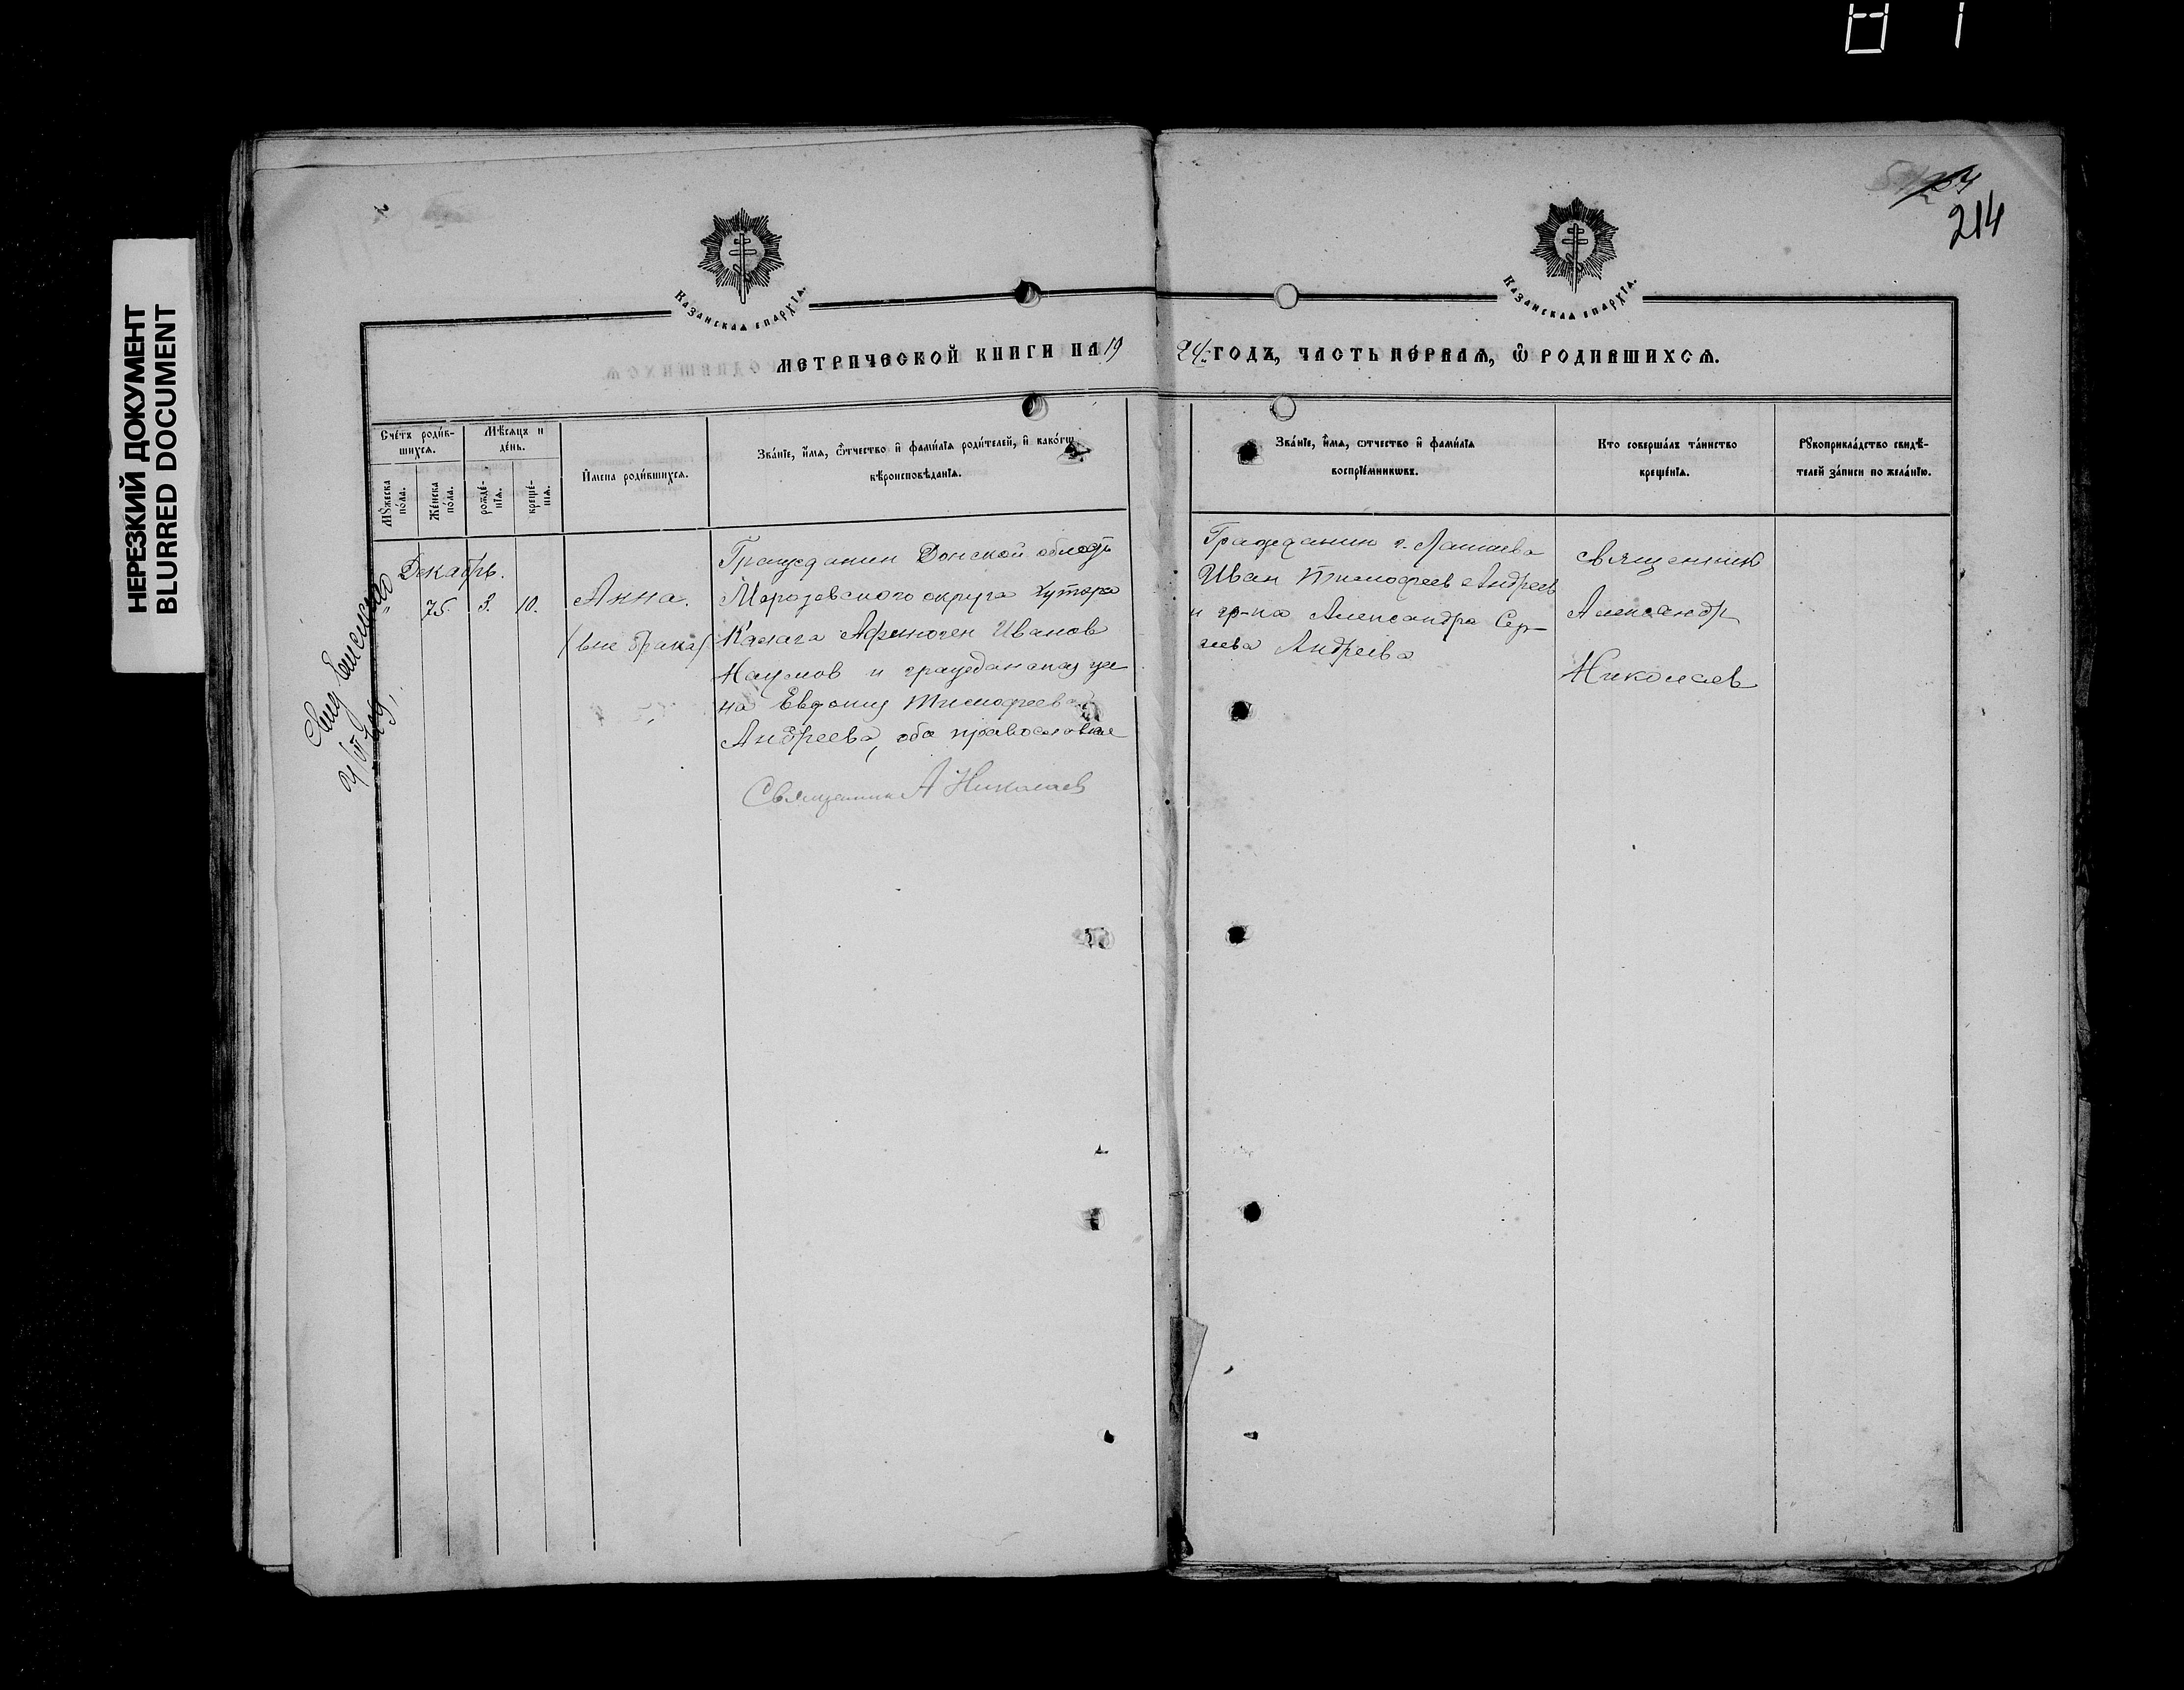 НЕРЕЗКИЙ ДОКУМЕНТ
BLURRED DOCUMENT
214
Казанская епархїа.
Казанская епархїа.
МЕТРИЧЕСКОЙ КНИГИ НА 19 24 ГОДЪ, ЧАСТЬ ПЕРВАЯ, Ѿ РОДИВШИХСЯ.
Счéтъ роди́в-
шихся.
Мѣсяцъ и
дéнь.
Мꙋжеска
пóла.
Жéнска
пóла.
рождé-
нїя.
крещé-
нїя.
И́мена роди́вшихся.
Звáнїе, и́мя, ѻ҆́тчество и҆ фами́лїя роди́телей, и҆ какóгѡ
вѣроисповѣ́данїя.
Звáнїе, и́мя, ѻтчество и҆ фами́лїя
воспрїéмникѡвъ.
Кто совершáлъ тáинство
крещéнїя.
Рꙋкоприклáдство свидѣ́-
телей зáписи по желáнїю.
Декабрь.
75. 3. 10.
Анна.
(вне брака)
Гражданин Донской област
Морозовского округа хутора
Калача Афиноген Иванов
Наумов и гражданская же
на Тимофеева
Андреева, оба православные
Священник А Николаев
Гражданин г. Лаишева
Иван Тимофеев Андреев
и гр-ка Александра Сер-
геева Андреева
Священник
Александр
Николаев